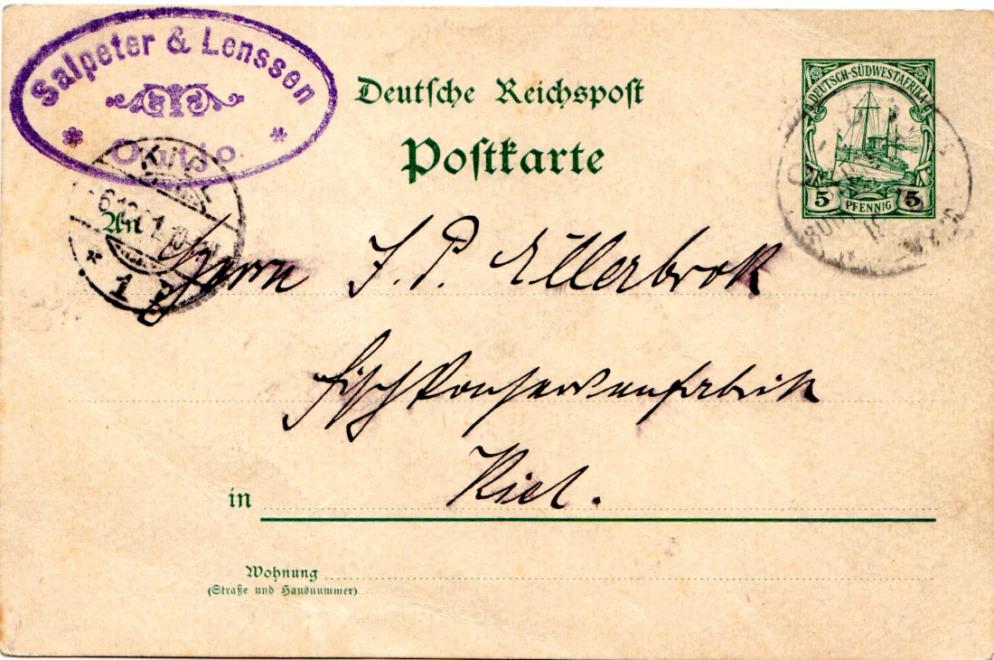 Salpeter & Lenssen
Outjo
Deutsche Reichspost
Postkarte
DEUTSCH-SÜDWESTAFRIKA
5 PFENNIG 5
KIEL
1
An
Herrn J. P. Ellerbrok
Fischkonservenfabrik
in Kiel.
Wohnung
(Straße und Hausnummer)